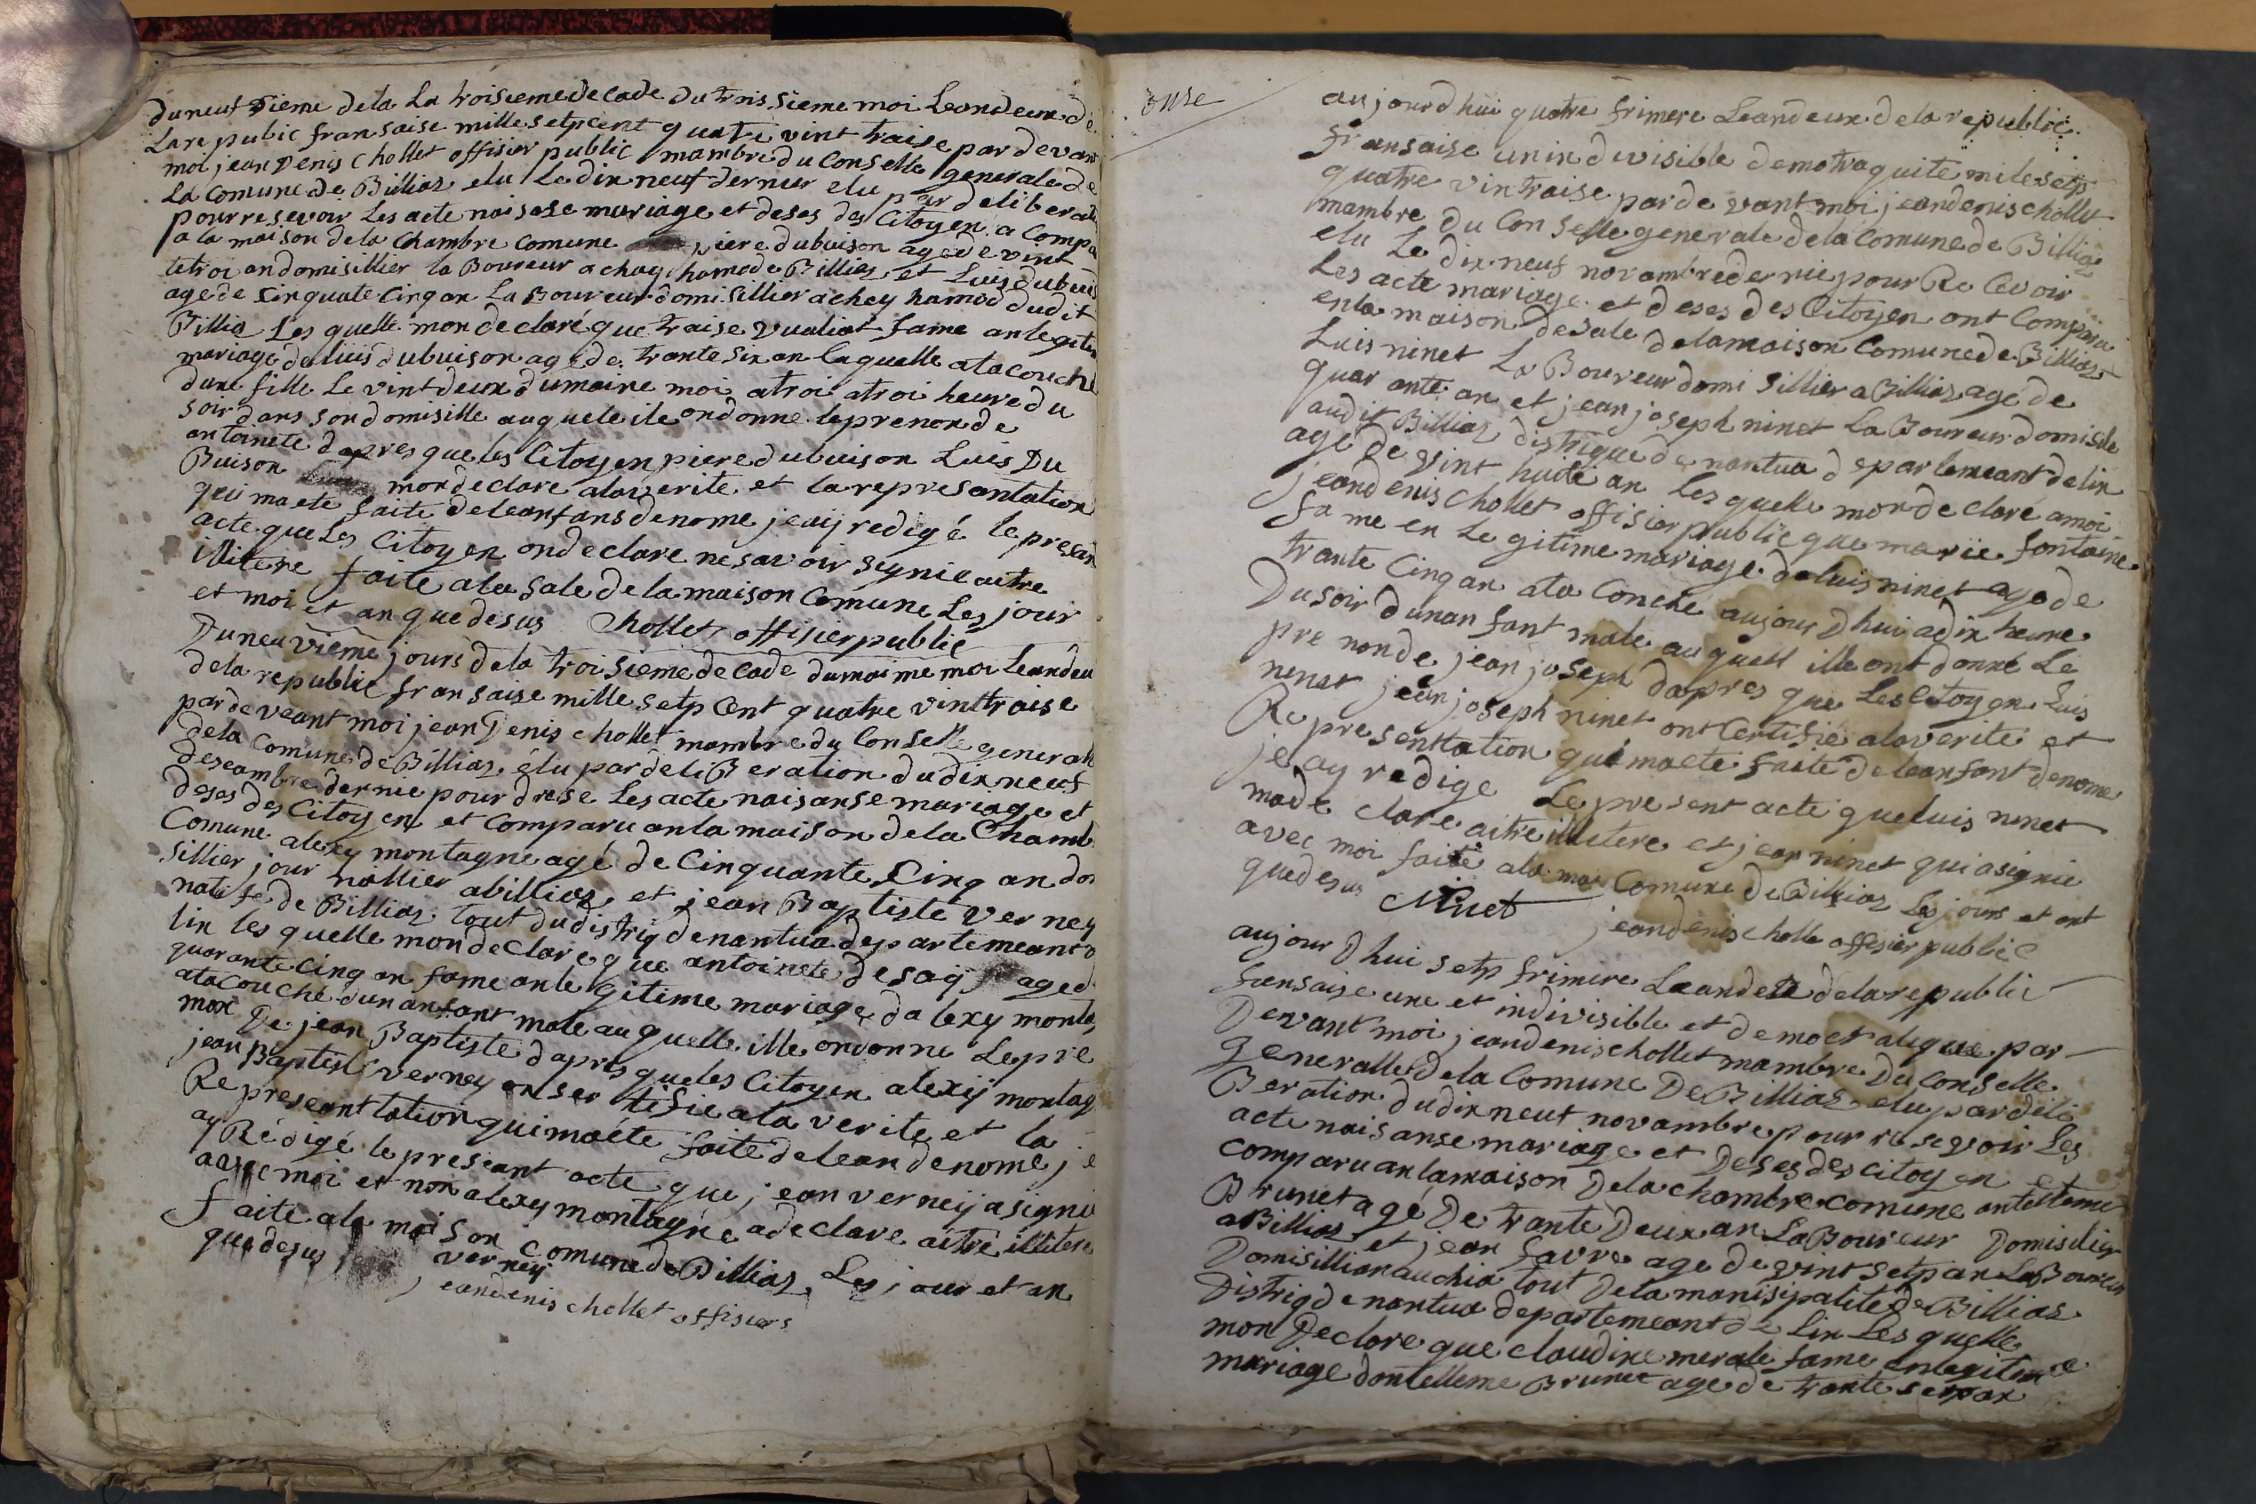 du neuf sieme dela La troisieme decade du troissieme moi Leandeux de
La republic fransaise mille setpcent quatre vint traise par devan
moi jean Denis Chollet offisier public mambre du Conselle generale de
La Comune de Billiaz elu Le dix neuf dernier elu par deliberati
pour resevoir Les acte naisase mariage et deses des Citoyen a Compa
a la maison dela Chambre Comune piere dubuison age de vint
tetroi an domisillier la Boureur a chay hamode Billiez et Luis dubuis
age de Cinquate Cinq an La Boureur domisillier a chey hamod dudit
Billia Les quelle mon declaré que traise vualiat fame an legiten
mariage de luis dubuison age de trante six an laquelle ata couché
dune fille Le vint deux dumaime moi atroi atroi heure du
soir dans son domisille auquele ile on donne le prenon de
antoinete dapres que les Citoyen piere dubuison Luis Du
Buison mon declare ala verite et la represantation
qui ma ete faite deleanfans denome jeaij redigé le presan
acte que Les Citoyen on declare ne savoir signie aitre
illitere faite ala sale dela maison Comune Les jour
et moi et an que desus Chollet offisier public
Du neuvieme jours dela troisieme decade dumaime moi Leandeu
dela republic fransaise mille setp Cent quatre vintraise
par deveant moi jean Denis chollet mambre du Conselle general
dela Comune de Billiaz élu par deliBeration du dix neuf
deseambre dernie pour drese Les acte naisanse mariage et
deses des Citoyen et Comparu anla maison dela Chamb
Comune alexy montagne agé de Cinquante Cinq an do
sillier jour nallier abilliaz et jean Baptiste verney
natife de Billiaz tout du distriq denantua departemeant d
lin les quelle mon declare que antoinete desaq aged
quarante Cinq an fame an le gitime mariage dalexy monta
ata couché dun anfant male au quelle ille on donne Le pre
non De jean Baptiste dapres que les Citoyen alexij montag
jean Baptiste verney on sertifie ala verite et la
Represeanttation qui maete faite delean denome je
ay Rédigé le preseant acte que jean verneij a signie
avec moi et non alexy montagne a declare aitre illitere
Faite ala maison Comune de Billiaz Les jour et an
que desus verneij
jeandenis chollet offisiers
onse
aujourdhui quatre frimere Leandeux dela republic
fransaise unindivisible demotraquite mile setp
quatre vintraise par de vant moi jeandenis chollet
mambre du Conselle generale dela Comune de Billiaz
elu Le dix neuf novambre dernie pour Re Cevoir
Les acte mariage et deses des Citoyen ont Comparu
enla maison desale delamaison Comune de Billiaz
Luis ninet La Boureur domi sillier a Billiaz agé de
quarante an et jean joseph ninet La Boureur domisile
audit Billiaz distrique de nantua departemeant de lin
age de vint huite an Les quelle mon de claré amoi
jeandenis chollet offisier public que marie fontaine
fame en Legitime mariage deluis ninet age de
trante Cinq an ata Couche aujour dhui adix heure
Dusoir dunan fant male au quell ille ont donné Le
pre nonde jean joseph dapres que Les Citoyen Luis
nenet jean joseph ninet ont Certifie alaverite et
Representtation qui maete faite deleanfant denome
je ay redige Le present acte que luis ninet
made clare aitre illitere et jean ninet qui asignie
avec moi faite ala mai Comune de Billiaz Les jours et ant
que desus Ninet
jeandenis cholle offisier public
aujour Dhui setp frimire Leandeu dela republic
fransaise une et indivisible et demoCratique par
Devant moi jeandenis chollet mambre Du Conselle
generalle dela Comune De Billiaz elu par deli
Beration du dix neuf novambre pour re sevoir Les
acte naisanse mariage et Deses des Citoyen et
comparu an lamaison Dela chambre comune antelteme
Brunet agé De trante Deux an LaBoureur Domisilier
aBillias et jean favre age de vint setp an LaBoureur
Domisillian auchia tout Dela manisipalite de Billias
Distriq de nantua departemeant de Lin Les quelle
mon Declare que claudine merale fame anlegitime
mariage dantelleme Brunet age de trante setpan